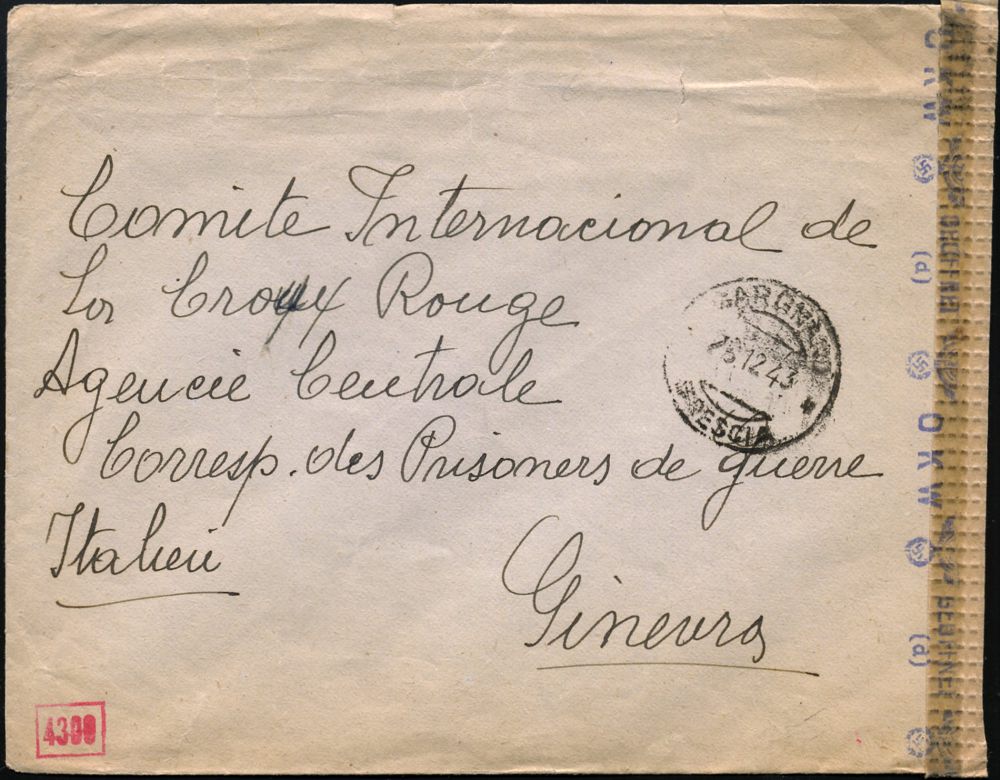 Comite Internacional de
La Croyx Rouge
Agencie Centrale
Corresp. des Prisoners de guerre
Italieni
Ginevra
GARGNANO
26.12.43
BRESCIA
4300
OKW
(d)
OKW
(d)